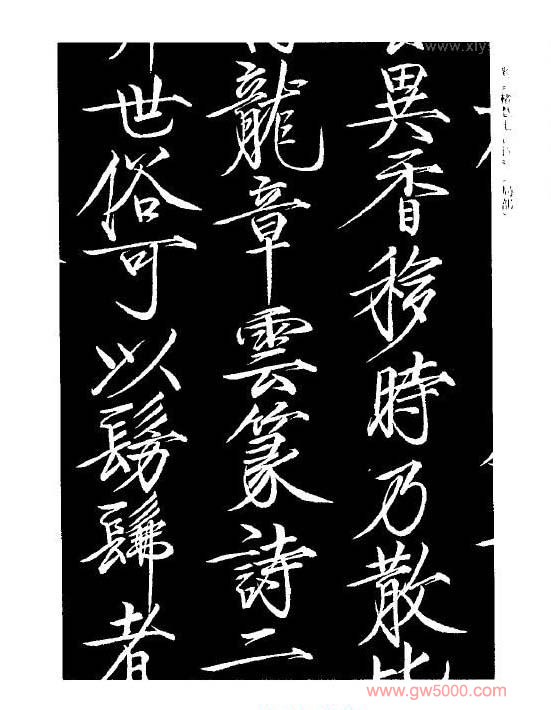 異香移時乃散
龍章雲篆詩二
世俗可以髣髴者
局部
www.gw5000.com